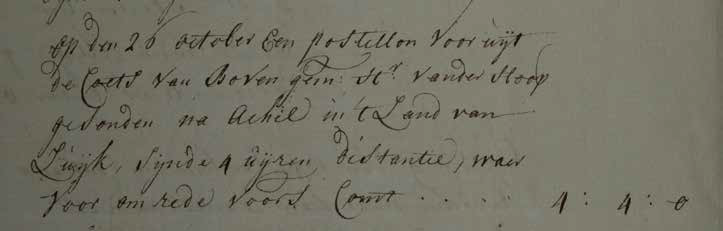 Op den 26 october Een postillon voor uijt
de Coets van Boven gem: Hr. vander Hoop
gesonden na Achil in 't Land van
Luijk, sijnde 4 uijren distantie, waer
voor om rede voors. Comt . . . . . 4 : 4 : 0